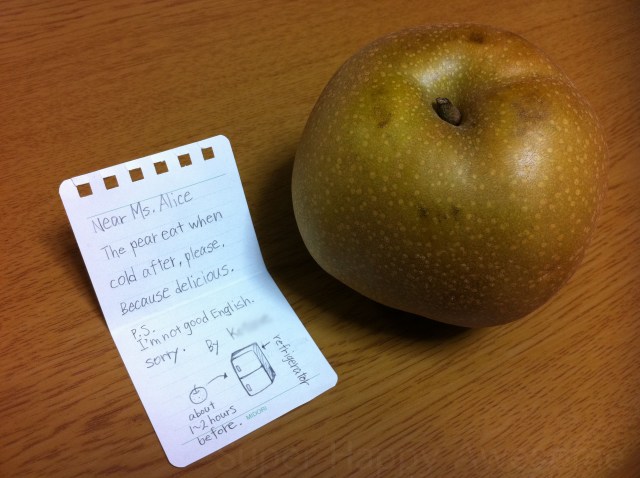 Near Ms. Alice
The pear eat when
cold after, please.
Because delicious.
P.S.
I'm not good English.
sorry. By
refrigerator
about
1~2 hours
before.